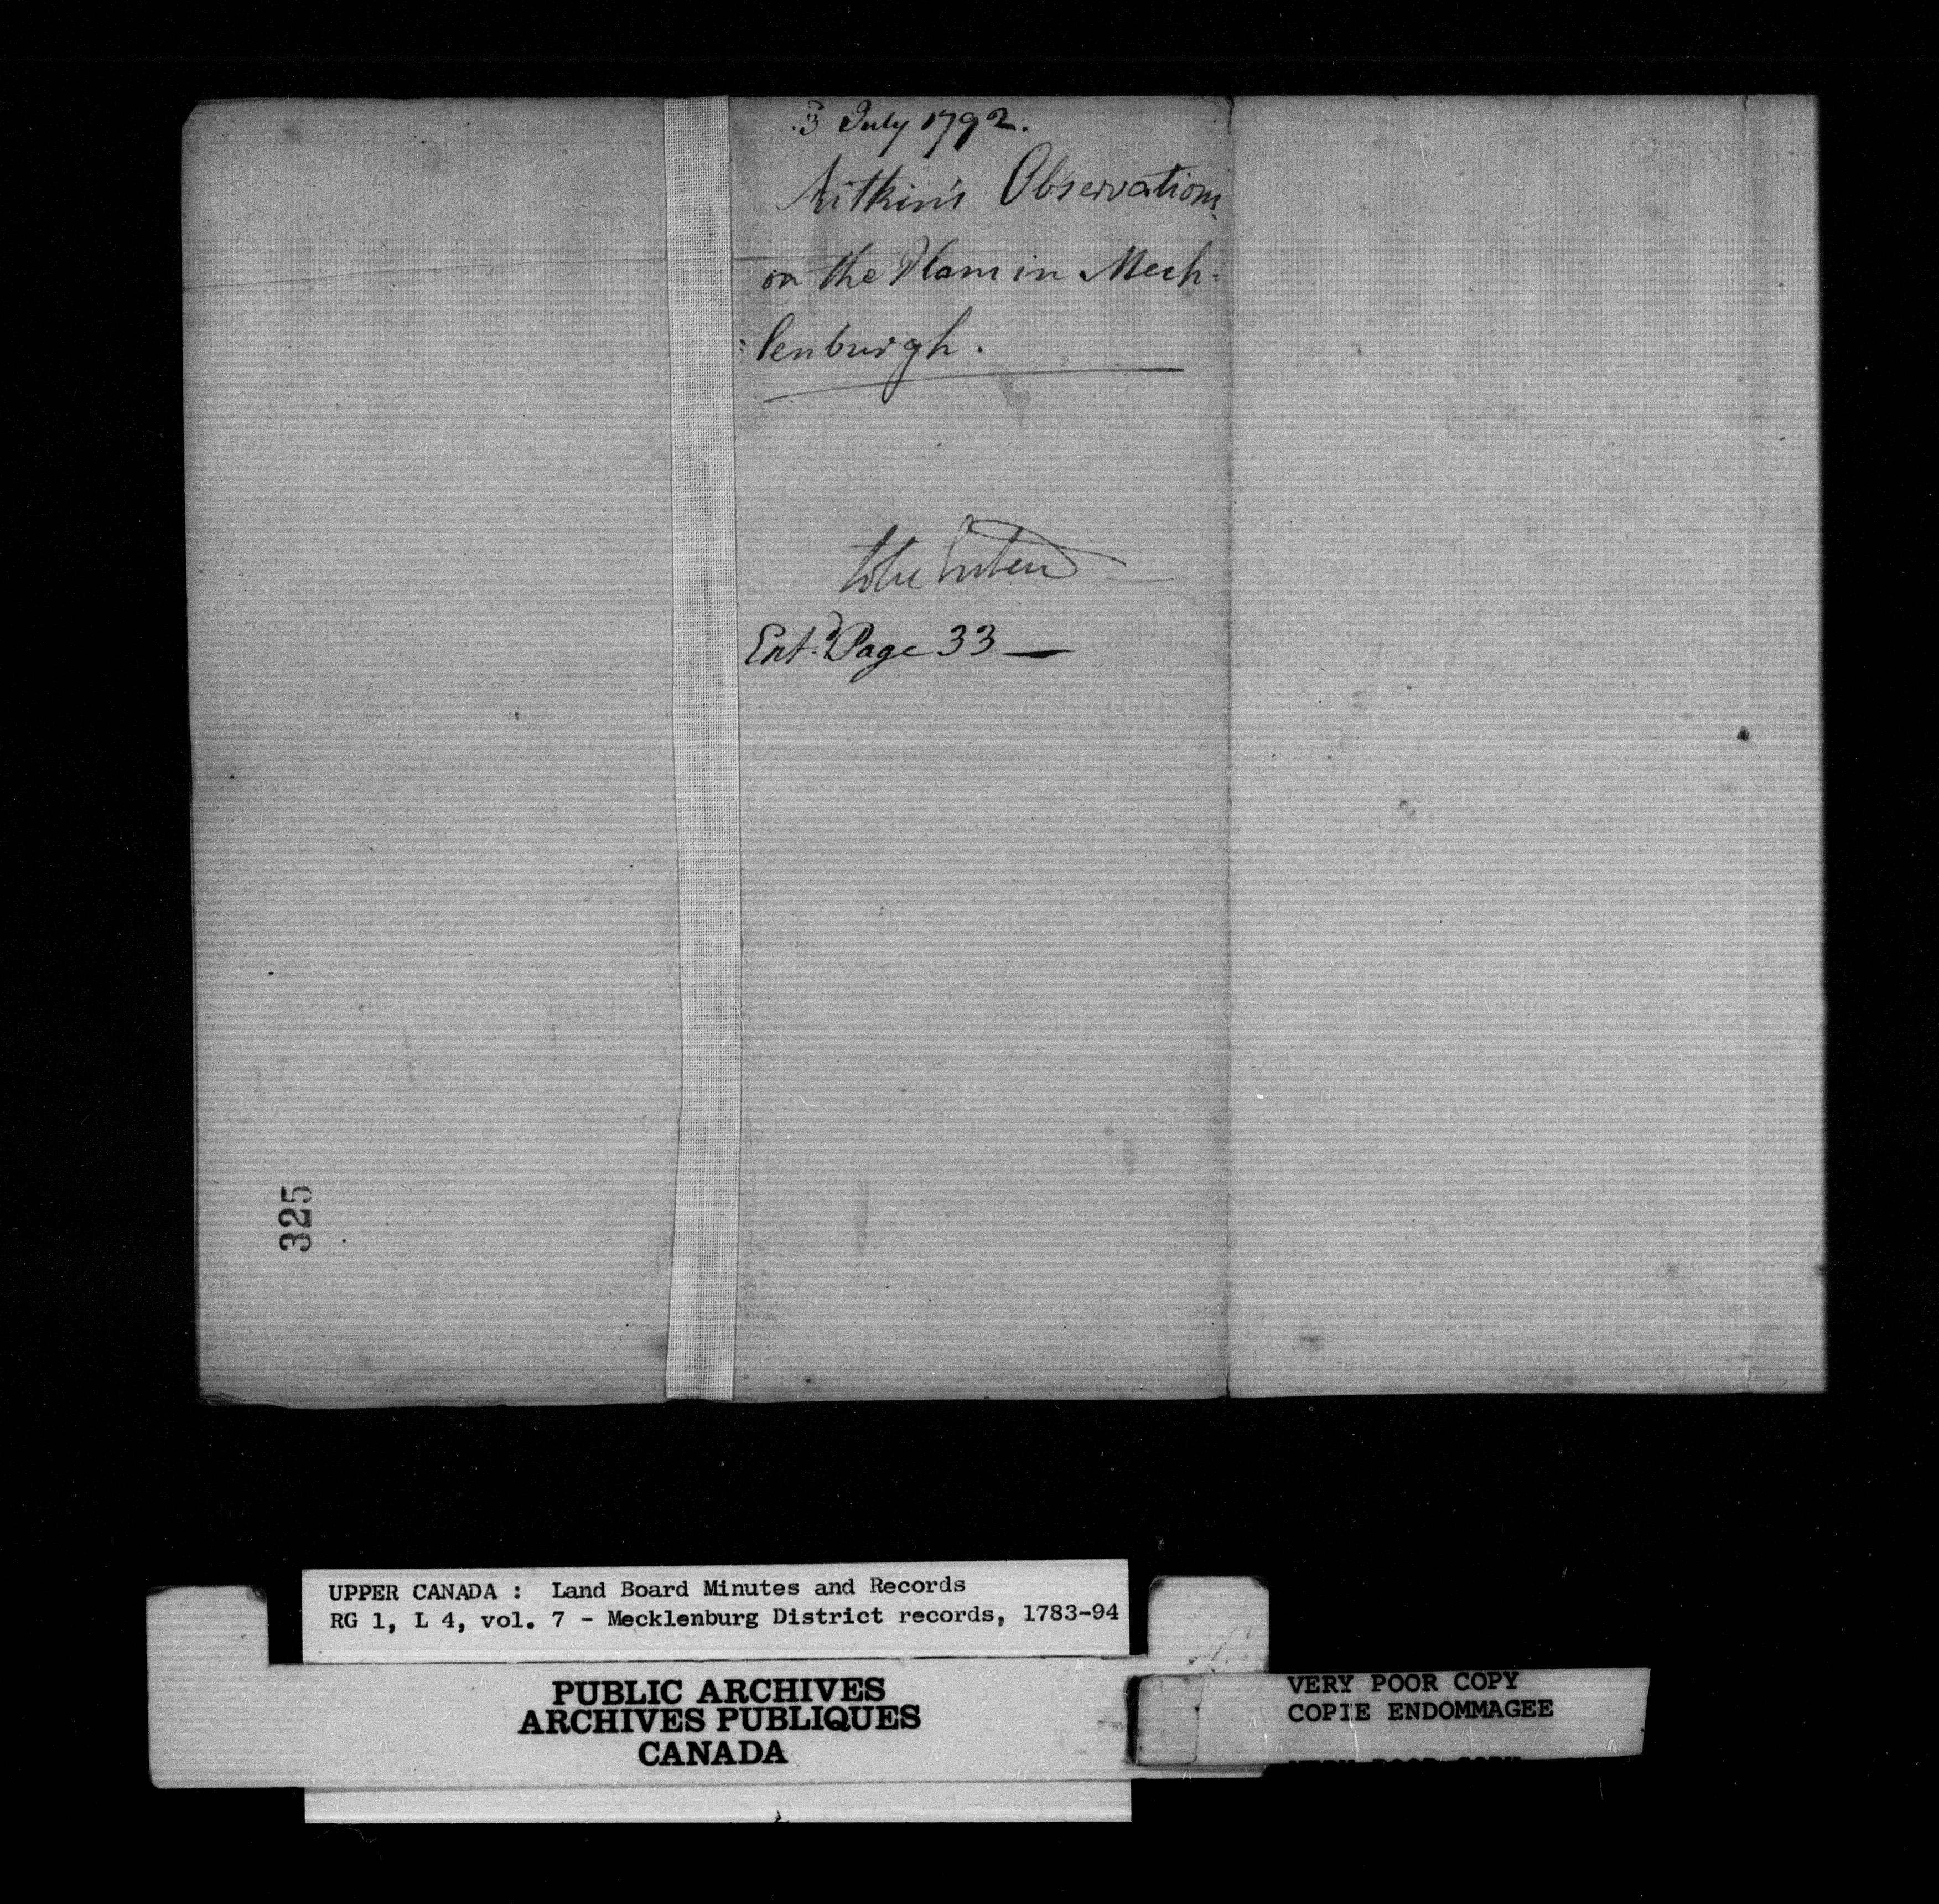 3 July 1792.
Aitkin's Observations
on the Plans in Meck-
=lenburgh.
to be Enterd
Entd. Page 33 —
325
UPPER CANADA : Land Board Minutes and Records
RG 1, L 4, vol. 7 - Mecklenburg District records, 1783-94
PUBLIC ARCHIVES
ARCHIVES PUBLIQUES
CANADA
VERY POOR COPY
COPIE ENDOMMAGEE